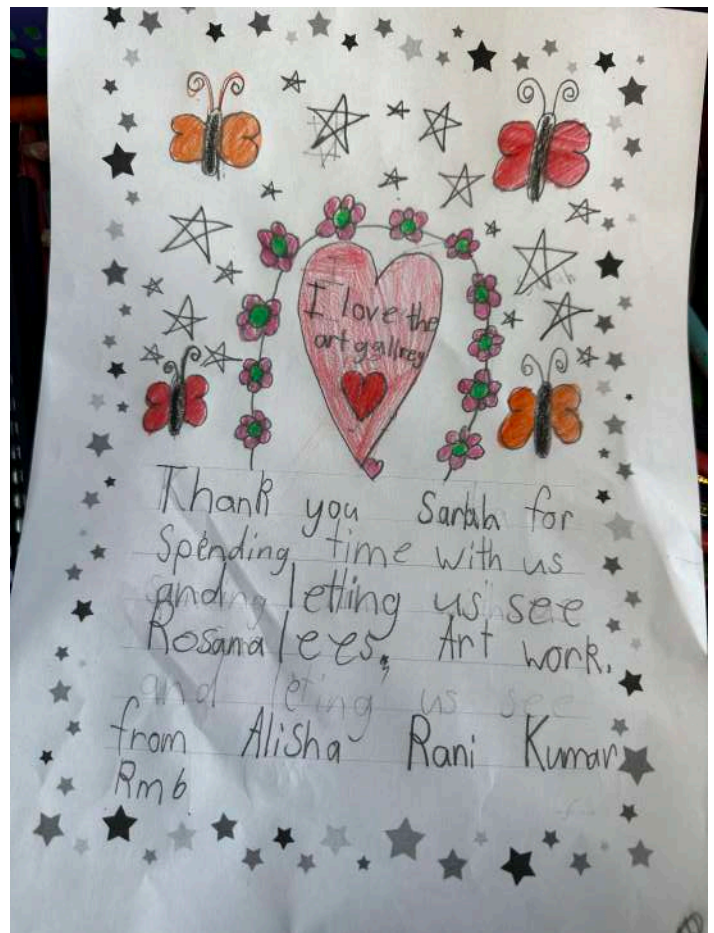 I love the
art gallrey
Thank you Sarbah for
Spending time with us
and letting us see
Rosama lees, Art work.
and leting us see
from Alisha Rani Kumar
Rm6